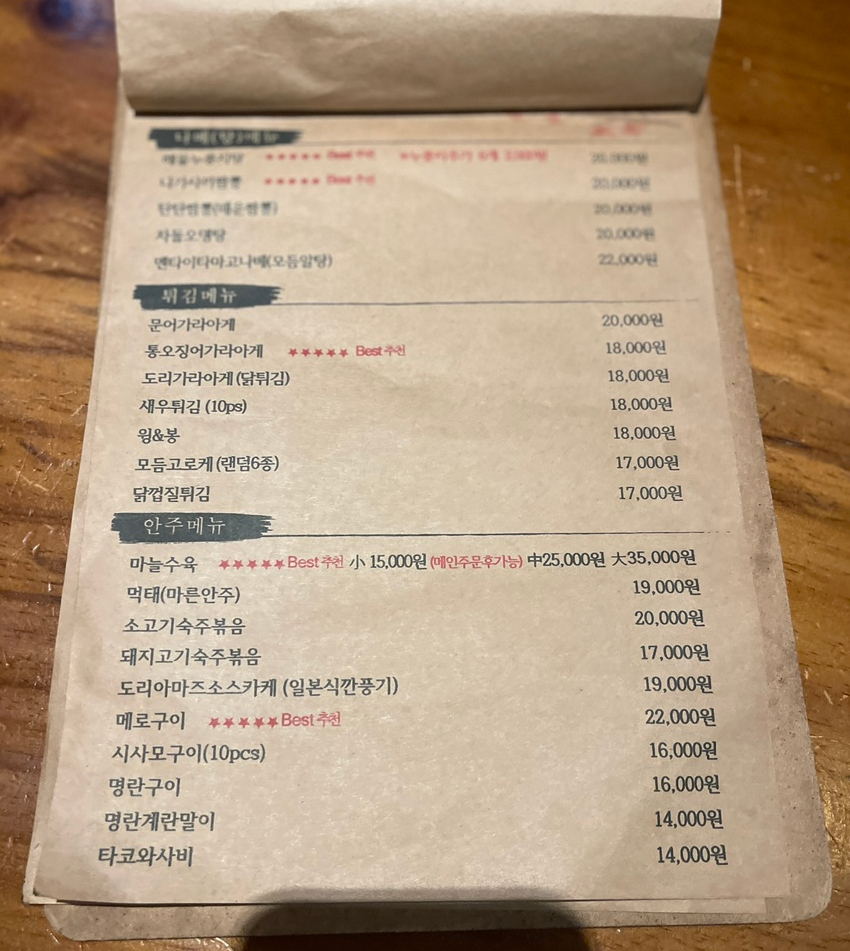 나베(탕)메뉴
해물누룽지탕 ★★★★★ Best 추천 20,000원
나가사끼짬뽕 ★★★★★ Best 추천 20,000원
탄탄짬뽕(매운짬뽕) 20,000원
차돌오뎅탕 20,000원
멘타이타마고나베(모듬알탕) 22,000원
튀김메뉴
문어가라아게 20,000원
통오징어가라아게 ★★★★★ Best 추천 18,000원
도리가라아게 (닭튀김) 18,000원
새우튀김 (10ps) 18,000원
윙&봉 18,000원
모듬고로케 (랜덤6종) 17,000원
닭껍질튀김 17,000원
안주메뉴
마늘수육 ★★★★★ Best 추천 小 15,000원 (메인주문후가능) 中25,000원 大35,000원
먹태(마른안주) 19,000원
소고기숙주볶음 20,000원
돼지고기숙주볶음 17,000원
도리아마즈소스카케 (일본식깐풍기) 19,000원
메로구이 ★★★★★ Best 추천 22,000원
시사모구이(10pcs) 16,000원
명란구이 16,000원
명란계란말이 14,000원
타코와사비 14,000원